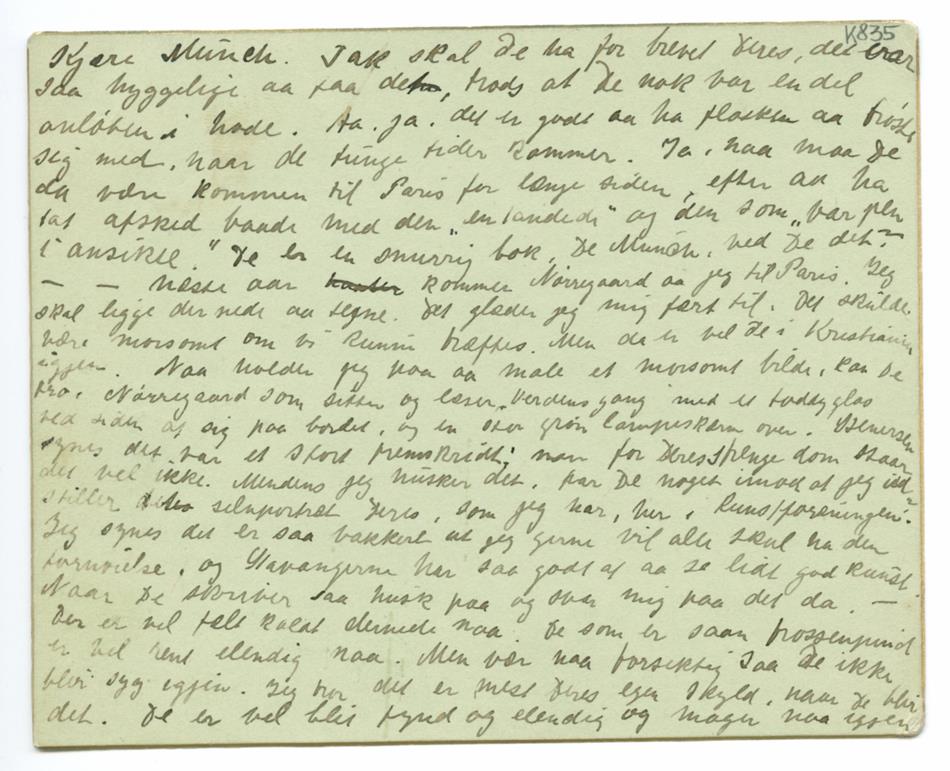 K835
Kjære Munch. Tak skal De ha for brevet Deres, det var
saa hyggelige aa faa det, trods at De nok var en del
anløben i hode. Aa. ja. det er godt aa ha flasken aa trøste
sig med, naar de tunge tider kommer. Ja, naa maa De
da være kommen til Paris for længe siden, efter aa ha
tat afsked baade med den „entandede" og den som „var pen
i ansikte." De er en snurrig bok, De Munch, ved De det?
— — Næste aar kommer Nørregaard aa jeg til Paris. Jeg
skal ligge der nede aa tegne. Det glæder jeg mig fært til. Det skulde
være morsomt om vi kunne træffes. Men da er vel De i Kristiania
igjen. Naa holder jeg paa aa male et morsomt bilde, kan De
tro, Nørregaard som sitter og læser Verdens gang med et toddyglas
ved siden af sig paa bordet, og en stor grøn lampeskærm over.
synes det var et stort fremskridt; naa for Deres strenge dom staar
det vel ikke. Mendens jeg husker det, har De noget imod at jeg ud-
stiller selvportræt Deres, som jeg har, her i Kunstforeningen?
Jeg synes det er saa vakkert at jeg gerne vil alle skal ha den
fornøielse, og Stavangerne har saa godt af aa se lidt god kunst.
Naar De skriver saa husk paa og svar mig paa det da. —
Der er vel fælt kaldt dernede naa. De som er saan frossenpind
er vel rent elendig naa. Men vær naa forsiktig saa De ikke
blir syg igjen. Jeg tror det er mest Deres egen skyld, naar De blir
det. De er vel blit tynd og elendig og mager naa igjen